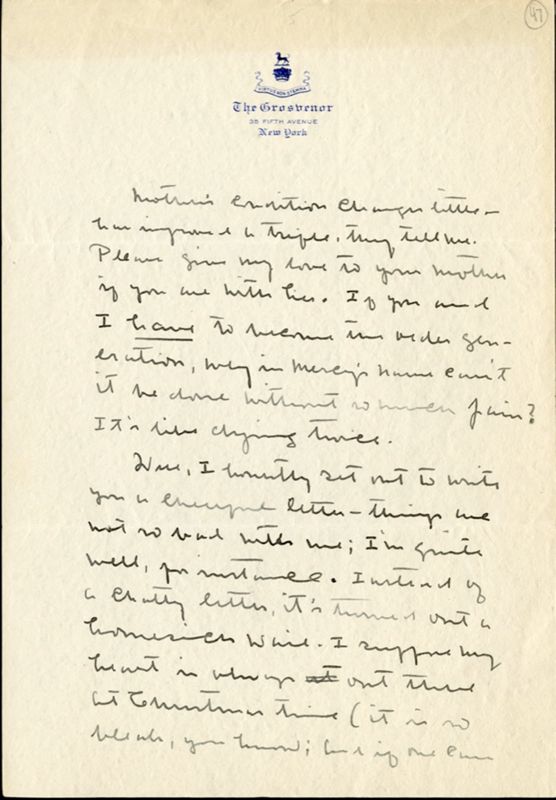 47
VIRTUS NON STEMMA
The Grosvenor
35 FIFTH AVENUE
New York
Mother's condition changes little—
has improved a trifle, they tell me.
Please give my love to your mother
if you are with her. If you and
I have to become the older gen-
eration, why in Mercy's name can't
it be done without so much pain?
It's like dying twice.
Well, I honestly set out to write
you a cheerful letter—things are
not so bad with me; I'm quite
well, for instance. Instead of
a chatty letter, it's turned out a
homesick wail. I suppose my
heart is always at out there
at Christmas time (it is so
bleak, you know; but if one can